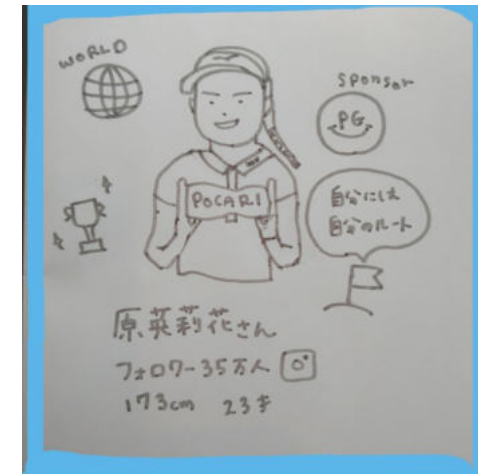 WORLD
sponsor
PG
POCARI
自分にしえ
自分のルート
原英莉花さん
フォロワー35万人
173cm 23才